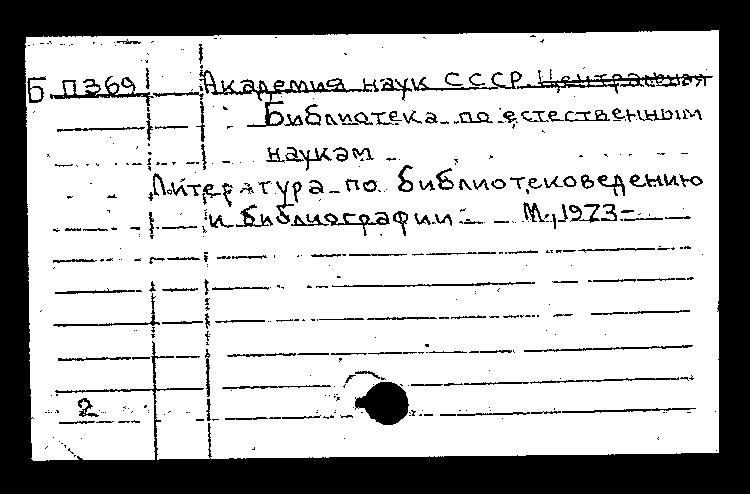 Б П369 Академия наук СССР. Центральная
Библиотека по естественным
наукам
Литература по библиотековедению
и библиографии. М., 1973-
2